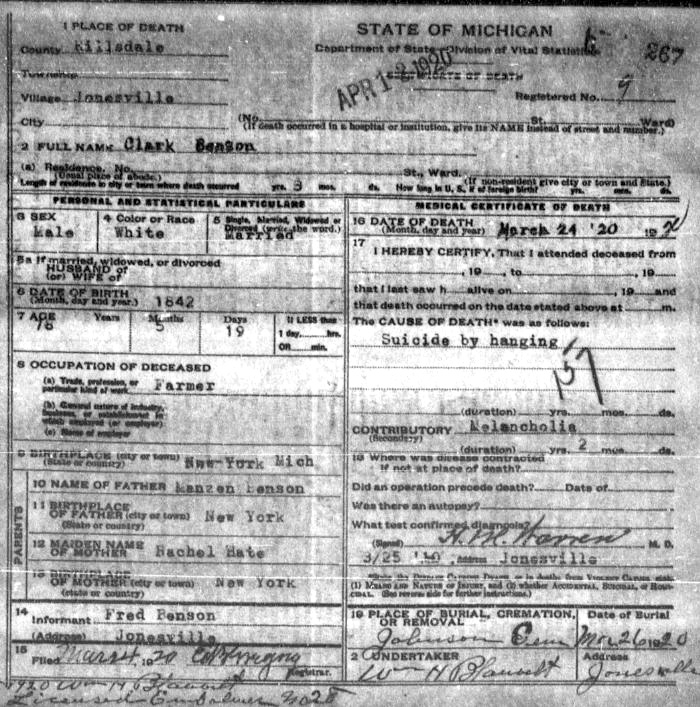 1 PLACE OF DEATH
County Hillsdale
Township
Village Jonesville
City
STATE OF MICHIGAN
Department of State—Division of Vital Statistics
267
APR 12 1920
CERTIFICATE OF DEATH
Registered No. 9
(No. St. Ward)
(If death occurred in a hospital or institution, give its NAME instead of street and number.)
2 FULL NAME Clark Benson
(a) Residence. No. St., Ward.
(Usual place of abode.) (If non-resident give city or town and State.)
Length of residence in city or town where death occurred yrs. 3 mos. ds. How long in U. S., if of foreign birth? yrs. mos. ds.
PERSONAL AND STATISTICAL PARTICULARS
3 SEX
Male
4 Color or Race
White
5 Single, Married, Widowed or
Divorced (write the word.)
Married
5a If married, widowed, or divorced
HUSBAND of
(or) WIFE of
6 DATE OF BIRTH
(Month, day and year.) 1842
7 AGE Years Months Days If LESS than
78 5 19 1 day, hrs.
OR min.
8 OCCUPATION OF DECEASED
(a) Trade, profession, or
particular kind of work Farmer
(b) General nature of industry,
business, or establishment in
which employed (or employer)
(c) Name of employer
9 BIRTHPLACE (city or town)
(State or country) New York Mich
PARENTS
10 NAME OF FATHER Benson
11 BIRTHPLACE
OF FATHER (city or town) New York
(State or country)
12 MAIDEN NAME
OF MOTHER Rachel Hate
13 BIRTHPLACE
OF MOTHER (city or town) New York
(state or country)
14
Informant Fred Benson
(Address) Jonesville
15
Filed Mar 24, 1920
Registrar.
MEDICAL CERTIFICATE OF DEATH
16 DATE OF DEATH
(Month, day and year) March 24 '20 19
17
I HEREBY CERTIFY, That I attended deceased from
, 19 to , 19
that I last saw h alive on , 19 and
that death occurred on the date stated above at m.
The CAUSE OF DEATH* was as follows:
Suicide by hanging
157
(duration) yrs. mos. ds.
CONTRIBUTORY Melancholia
(Secondary)
(duration) yrs. 2 mos. ds.
18 Where was disease contracted
if not at place of death?
Did an operation precede death? Date of
Was there an autopsy?
What test confirmed diagnosis?
(Signed) H. M. Warren M. D.
3/25 '20 Address Jonesville
*State the Disease Causing Death, or in deaths from Violent Causes state
(1) Means and Nature of Injury, and (2) whether Accidental, Suicidal, or Homi-
cidal. (See reverse side for further instructions.)
19 PLACE OF BURIAL, CREMATION,
OR REMOVAL
Johnson Cem
Date of Burial
Mar 26 1920
2 UNDERTAKER
Wm H Blauvelt
Address
Jonesville
1920 Wm H Blauvelt
Licensed Embalmer